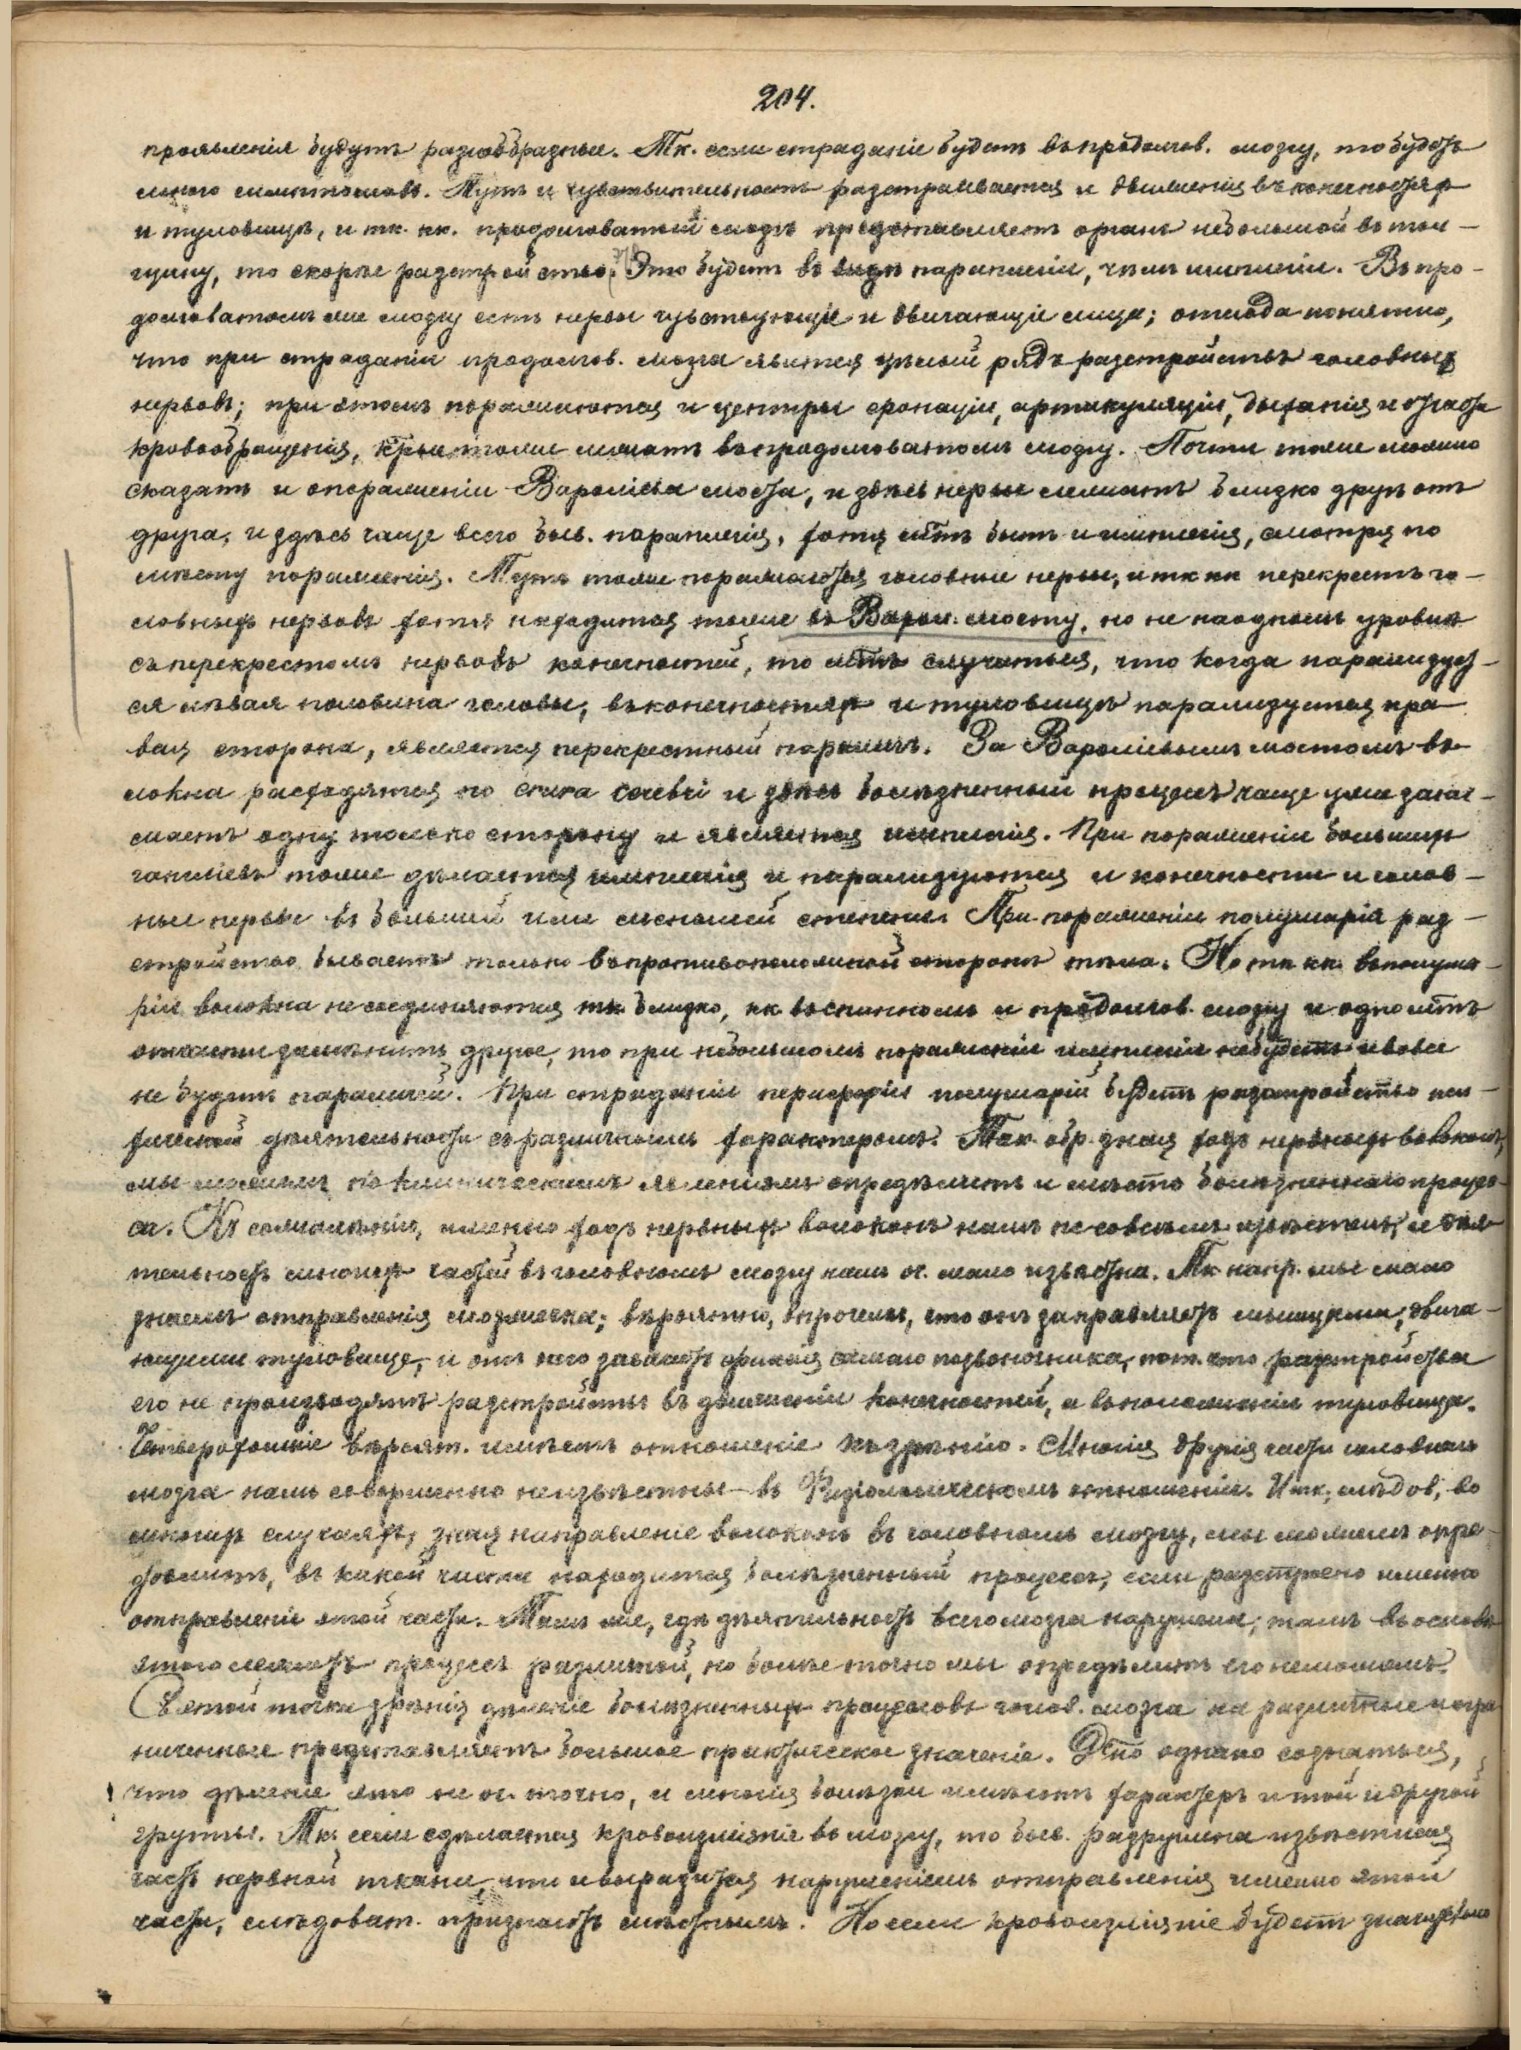 204.
проявленія будутъ разнообразные. Тк. если страданіе будетъ въ продолгов. мозгу, то будетъ
много симптомовъ. Тутъ и чувствительность разстраивается и движенія въ конечностяхъ
и туловищѣ, и тк. кк. продолговатый мозгъ представляетъ органъ небольшой въ тол-
щину, то скорѣе разстройство. Это будетъ въ видѣ параплегіи, чѣмъ гемиплегіи. Въ про-
долговатомъ же мозгу есть нервы чувствующіе и двигающіе лице; отсюда понятно,
что при страданіи продолгов. мозга явится цѣлый рядъ разстройствъ головныхъ
нервовъ; при этомъ поражаются и центры фонаціи, артикуляціи, дыханія и отчасти
кровообращенія, кѣрые тоже лежатъ въ продолговатомъ мозгу. Почти тоже можно
сказать и о пораженіи Вароліева моста, и здѣсь нервы лежатъ близко другъ отъ
друга, и здѣсь чаще всего быв. параплегія, хотя м. бть быть и гемиплегія, смотря по
мѣсту пораженія. Тутъ тоже поражаются головные нервы, и тк кк перекрестъ го-
ловныхъ нервовъ хотя находится тоже въ Варол. мосту, но не на одномъ уровнѣ
съ перекрестомъ нервовъ конечностей, то мжтъ случиться, что когда парализует-
ся лѣвая половина головы, въ конечностяхъ и туловищѣ парализуется пра-
вая сторона, является перекрестный параличъ. За Вароліевымъ мостомъ во-
локна расходятся по crura cerebri и здѣсь болѣзненный процессъ чаще уже захва-
тываетъ одну только сторону и является гемиплегія. При пораженіи большихъ
гангліевъ тоже дѣлается гемиплегія и парализуются и конечности и голов-
ные нервы въ большей или меньшей степени. При пораженіи полушарія раз-
стройство бываетъ только въ противоположной сторонѣ тѣла. Но тк кк. въ полуша-
ріи волокна не соединяются тк. близко, кк. въ спинномъ и продолгов. мозгу и одно мжтъ
отчасти замѣнить другое, то при небольшомъ пораженіи гемиплегіи не будетъ и вовсе
не будетъ параличей. При страданіи периферіи полушарій будетъ разстройство пси-
хической дѣятельности съ различнымъ характеромъ. Так. обр. зная ходъ нервныхъ волоконъ,
мы можемъ по клиническимъ явленіямъ опредѣлить и мѣсто болѣзненнаго процес-
са. Къ сожалѣнію, именно ходъ нервныхъ волоконъ намъ не совсѣмъ извѣстенъ, и дѣя-
тельность многихъ частей въ головномъ мозгу намъ оч. мало извѣстна. Тк. напр. мы мало
знаемъ отправленія мозжечка; вѣроятно, впрочемъ, что онъ заправляетъ мышцами, двига-
ющими туловище, и отъ него зависитъ фиксація самаго позвоночника, пот. что разстройства
его не производятъ разстройства въ движеніи конечностей, а въ положеніи туловища.
Четверохолміе вѣроят. имѣетъ отношеніе къ зрѣнію. Многія другія части головнаго
мозга намъ совершенно неизвѣстны въ Физіологическомъ отношеніи. И тк, слѣдов, во
многихъ случаяхъ, зная направленіе волоконъ въ головномъ мозгу, мы можемъ опре-
дѣлить, въ какой части находится болѣзненный процессъ, если разстроено именно
отправленіе этой части. Тамъ же, гдѣ дѣятельность всего мозга нарушена, тамъ въ основѣ
этого лежитъ процессъ разлитой, но болѣе точно мы опредѣлить его не можемъ.
Съ этой точки зрѣнія дѣленіе болѣзненныхъ процессовъ голов. мозга на разлитые и огра-
ниченные представляетъ большое практическое значеніе. Дно однако сознаться,
что дѣленіе это не оч. точно, и многія болѣзни имѣютъ характеръ и той и другой
группы. Тк. если сдѣлается кровоизліяніе въ мозгу, то быв. разрушена извѣстная
часть нервной ткани, что и выразится нарушеніемъ отправленія именно этой
части, слѣдоват. признаютъ мѣстнымъ. Но если кровоизліяніе будетъ значительно